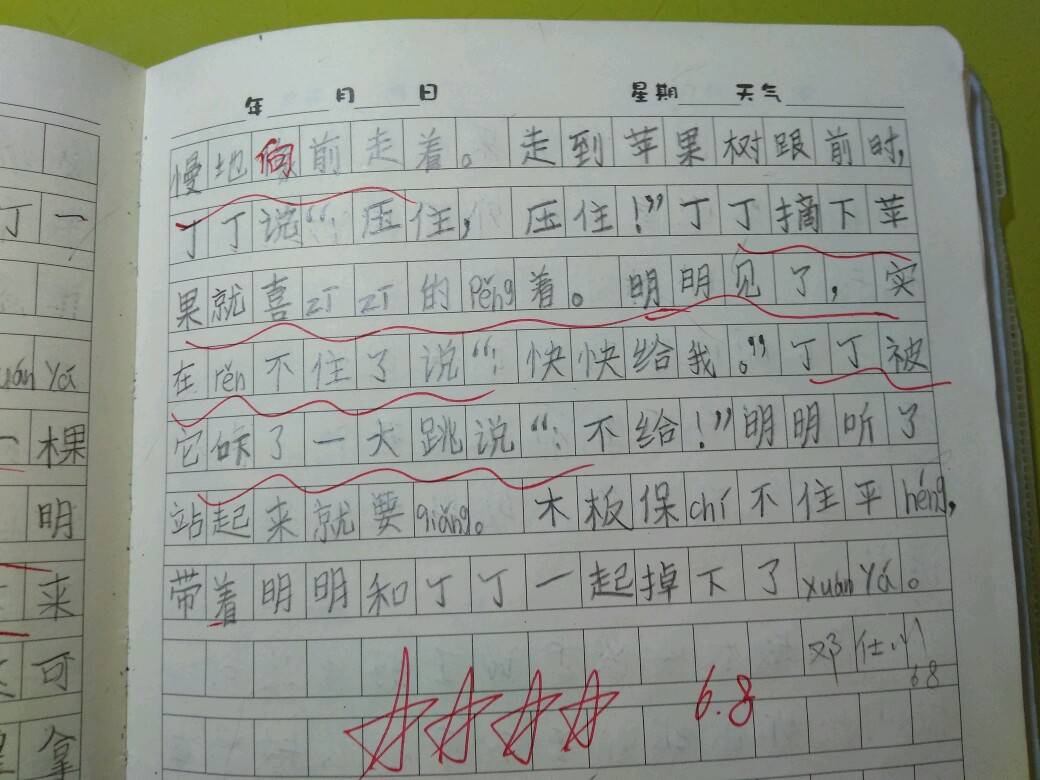 年 月 日 星期 天气
慢地向前走着。走到苹果树跟前时,
丁丁说“:压住,压住!”丁丁摘下苹
果就喜zī zī的Pěng着。明明见了,实
在rěn不住了说“:快快给我。”丁丁被
它吓了一大跳说“:不给!”明明听了
站起来就要qiǎng。木板保chí不住平héng,
带着明明和丁丁一起掉下了xuán Yá。
邓仕
6.8
6.8
丁一
uán Yá
一棵
明
来
可
拿